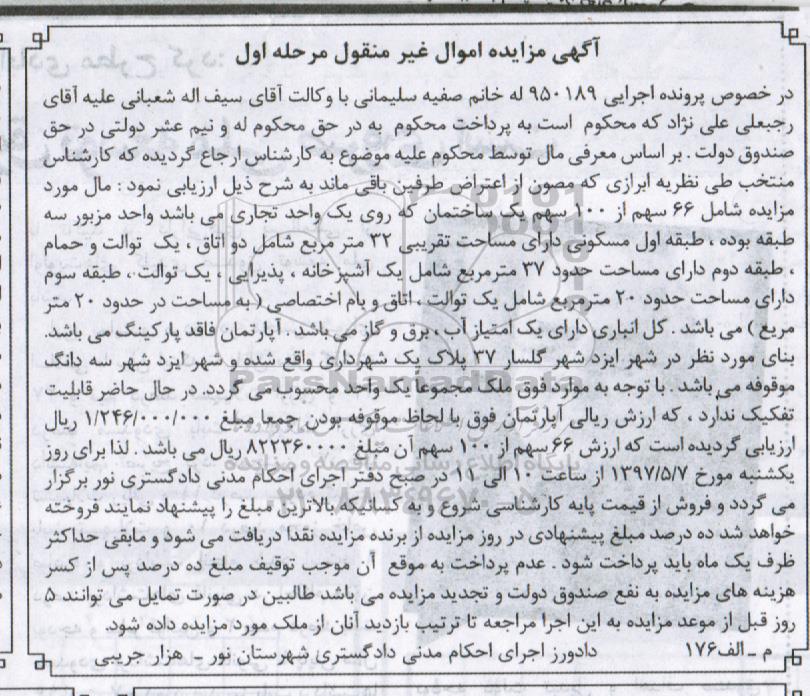 آگهی مزایده اموال غیر منقول مرحله اول
در خصوص پرونده اجرایی ۹۵۰۱۸۹ له خانم صفیه سلیمانی با وکالت آقای سیف اله شعبانی علیه آقای
رجبعلی علی نژاد که محکوم است به پرداخت محکوم به در حق محکوم له و نیم عشر دولتی در حق
صندوق دولت . بر اساس معرفی مال توسط محکوم علیه موضوع به کارشناس ارجاع گردیده که کارشناس
منتخب طی نظریه ابرازی که مصون از اعتراض طرفین باقی ماند به شرح ذیل ارزیابی نمود : مال مورد
مزایده شامل ۶۶ سهم از ۱۰۰ سهم یک ساختمان که روی یک واحد تجاری می باشد واحد مزبور سه
طبقه بوده ، طبقه اول مسکونی دارای مساحت تقریبی ۳۲ متر مربع شامل دو اتاق ، یک توالت و حمام
، طبقه دوم دارای مساحت حدود ۳۷ مترمربع شامل یک آشپزخانه ، پذیرایی ، یک توالت ، طبقه سوم
دارای مساحت حدود ۲۰ مترمربع شامل یک توالت ، اتاق و بام اختصاصی ( به مساحت در حدود ۲۰ متر
مربع ) می باشد . کل انباری دارای یک امتیاز آب ، برق و گاز می باشد . آپارتمان فاقد پارکینگ می باشد.
بنای مورد نظر در شهر ایزد شهر گلسار ۳۷ پلاک یک شهرداری واقع شده و شهر ایزد شهر سه دانگ
موقوفه می باشد . با توجه به موارد فوق ملک مجموعاً یک واحد محسوب می گردد. در حال حاضر قابلیت
تفکیک ندارد ، که ارزش ریالی آپارتمان فوق با لحاظ موقوفه بودن جمعا مبلغ ۱/۲۴۶/۰۰۰/۰۰۰ ریال
ارزیابی گردیده است که ارزش ۶۶ سهم از ۱۰۰ سهم آن مبلغ ۸۲۲۳۶۰۰۰۰ ریال می باشد . لذا برای روز
یکشنبه مورخ ۱۳۹۷/۵/۷ از ساعت ۱۰ الی ۱۱ در صبح دفتر اجرای احکام مدنی دادگستری نور برگزار
می گردد و فروش از قیمت پایه کارشناسی شروع و به کسانیکه بالاترین مبلغ را پیشنهاد نمایند فروخته
خواهد شد ده درصد مبلغ پیشنهادی در روز مزایده از برنده مزایده نقدا دریافت می شود و مابقی حداکثر
ظرف یک ماه باید پرداخت شود . عدم پرداخت به موقع آن موجب توقیف مبلغ ده درصد پس از کسر
هزینه های مزایده به نفع صندوق دولت و تجدید مزایده می باشد طالبین در صورت تمایل می توانند ۵
روز قبل از موعد مزایده به این اجرا مراجعه تا ترتیب بازدید آنان از ملک مورد مزایده داده شود.
م - الف۱۷۶ دادورز اجرای احکام مدنی دادگستری شهرستان نور - هزار جریبی
ParsNamadData